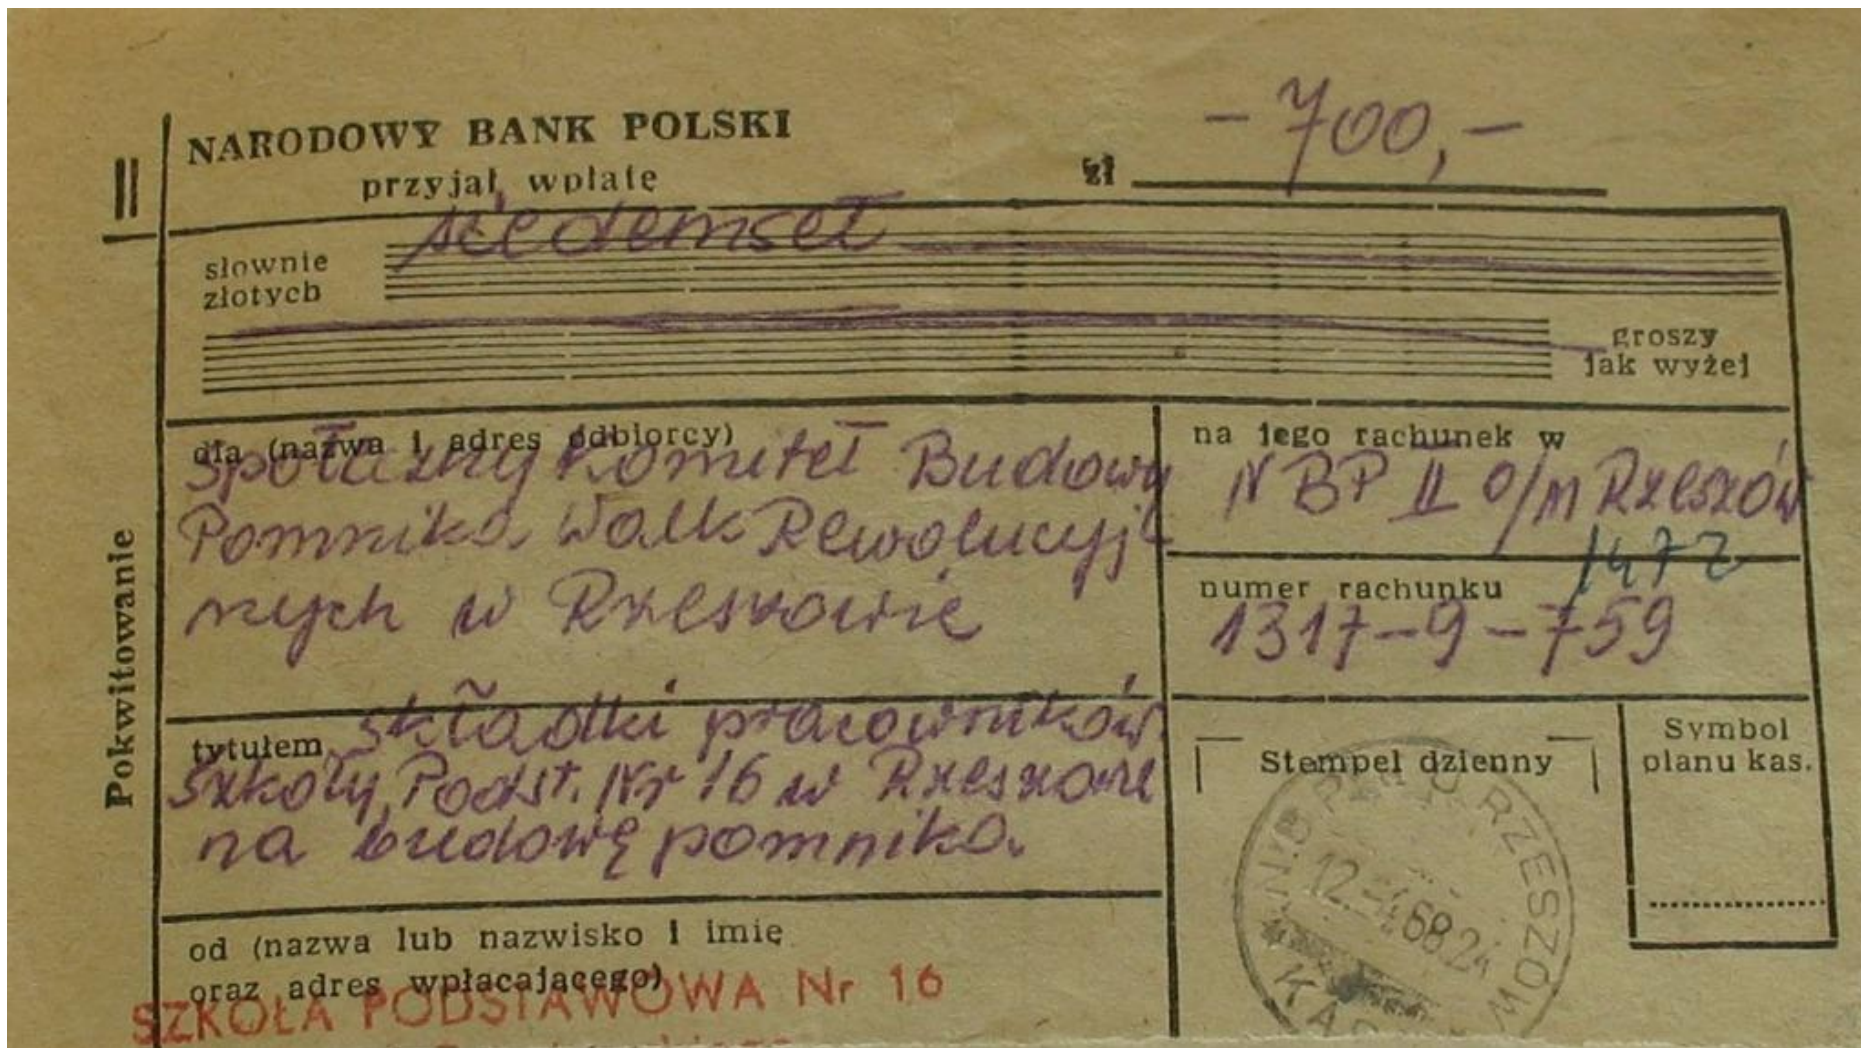 II
NARODOWY BANK POLSKI
przyjął wpłatę
zł -700,-
słownie złotych siedemset
groszy jak wyżej
Pokwitowanie
dla (nazwa i adres odbiorcy)
Społeczny Komitet Budowy
Pomnika Walk Rewolucyj
nych w Rzeszowie
na jego rachunek w
NBP II O/M Rzeszów
1472
numer rachunku
1317-9-759
tytułem składki pracowników
Szkoły Podst. Nr 16 w Rzeszowie
na budowę pomnika.
Stempel dzienny
Symbol
planu kas.
RZESZÓW
12. 68.24
od (nazwa lub nazwisko i imię
oraz adres wpłacającego)
SZKOŁA PODSTAWOWA Nr 16